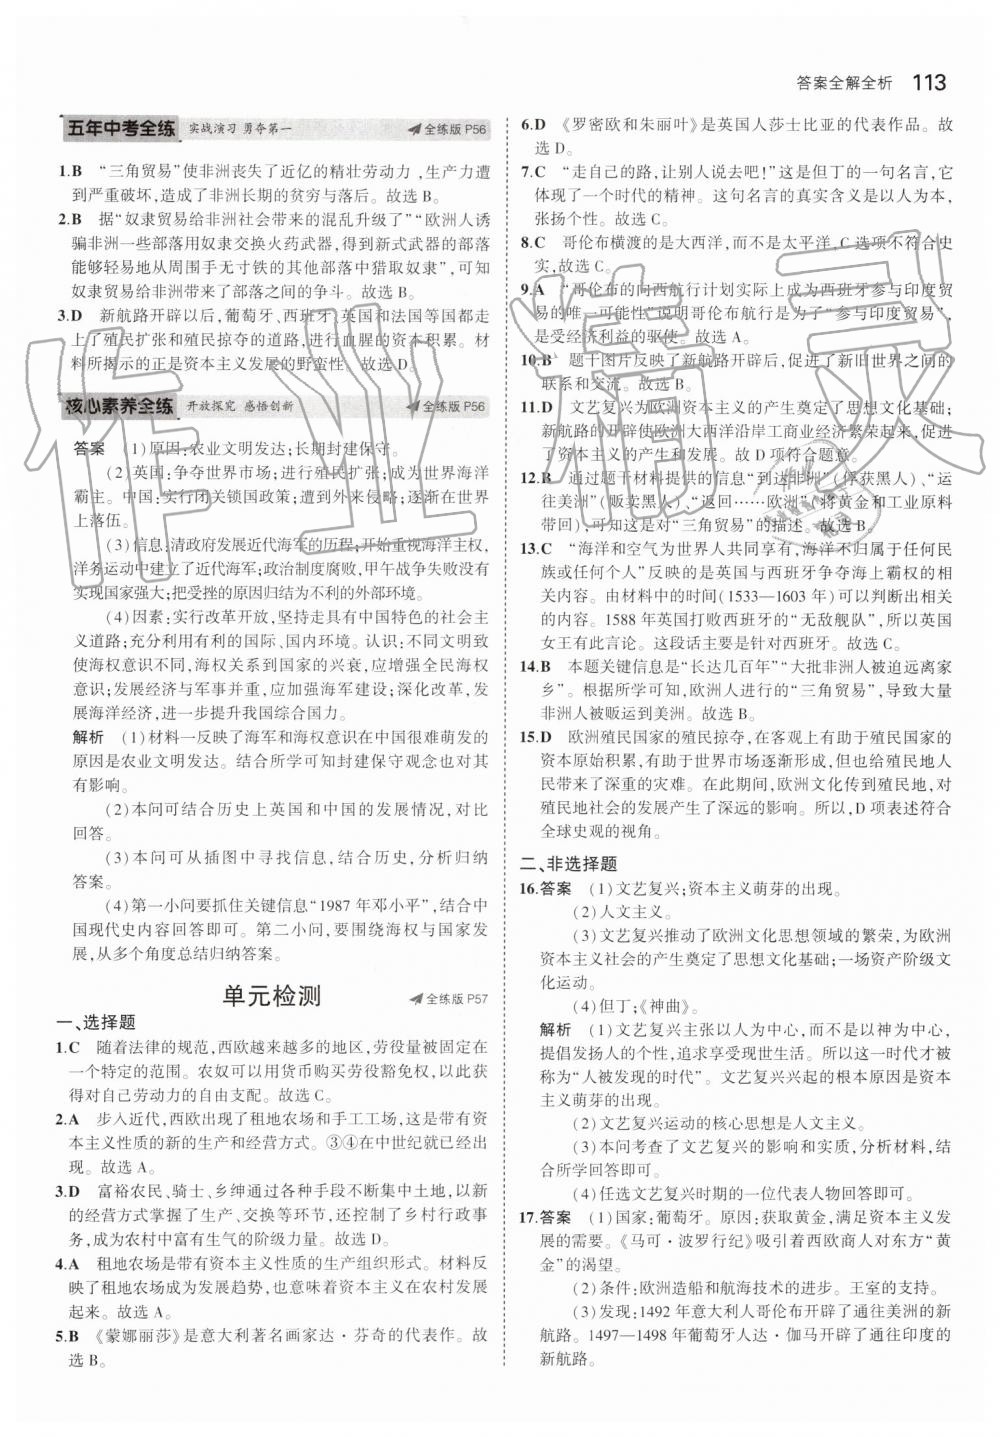 答案全解全析 113
五年中考全练 实战演习 勇夺第一 全练版 P56
1.B “三角贸易”使非洲丧失了近亿的精壮劳动力,生产力遭
到严重破坏,造成了非洲长期的贫穷与落后。故选 B。
2.B 据“奴隶贸易给非洲社会带来的混乱升级了”“欧洲人诱
骗非洲一些部落用奴隶交换火药武器,得到新式武器的部落
能够轻易地从周围手无寸铁的其他部落中猎取奴隶”,可知
奴隶贸易给非洲带来了部落之间的争斗。故选 B。
3.D 新航路开辟以后,葡萄牙、西班牙、英国和法国等国都走
上了殖民扩张和殖民掠夺的道路,进行血腥的资本积累。材
料所揭示的正是资本主义发展的野蛮性。故选 D。
核心素养全练 开放探究 感悟创新 全练版 P56
答案 (1)原因:农业文明发达;长期封建保守。
(2)英国:争夺世界市场;进行殖民扩张;成为世界海洋
霸主。中国:实行闭关锁国政策;遭到外来侵略;逐渐在世界
上落伍。
(3)信息:清政府发展近代海军的历程;开始重视海洋主权,
洋务运动中建立了近代海军;政治制度腐败,甲午战争惨败没有
实现国家强大;把受挫的原因归结为不利的外部环境。
(4)因素:实行改革开放,坚持走具有中国特色的社会主
义道路;充分利用有利的国际、国内环境。认识:不同文明致
使海权意识不同,海权关系到国家的兴衰,应增强全民海权
意识;发展经济与军事并重,应加强海军建设;深化改革,发
展海洋经济,进一步提升我国综合国力。
解析 (1)材料一反映了海军和海权意识在中国很难萌发的
原因是农业文明发达。结合所学可知封建保守观念也对其
有影响。
(2)本问可结合历史上英国和中国的发展情况,对比
回答。
(3)本问可从插图中寻找信息,结合历史,分析归纳
答案。
(4)第一小问要抓住关键信息“1987 年邓小平”,结合中
国现代史内容回答即可。第二小问,要围绕海权与国家发
展,从多个角度总结归纳答案。
单元检测 全练版 P57
一、选择题
1.C 随着法律的规范,西欧越来越多的地区,劳役量被固定在
一个特定的范围。农奴可以用货币购买劳役豁免权,以此获
得对自己劳动力的自由支配。故选 C。
2.A 步入近代,西欧出现了租地农场和手工工场,这是带有资
本主义性质的新的生产和经营方式。③④在中世纪就已经出
现。故选 A。
3.D 富裕农民、骑士、乡绅通过各种手段不断集中土地,以新
的经营方式掌握了生产、交换等环节,还控制了乡村行政事
务,成为农村中富有生气的阶级力量。故选 D。
4.A 租地农场是带有资本主义性质的生产组织形式。材料反
映了租地农场成为发展趋势,也意味着资本主义在农村发展
起来。故选 A。
5.B 《蒙娜丽莎》是意大利著名画家达·芬奇的代表作。故
选 B。
6.D 《罗密欧和朱丽叶》是英国人莎士比亚的代表作品。故
选 D。
7.C “走自己的路,让别人说去吧!”这是但丁的一句名言,它
体现了一个时代的精神。这句名言的真实含义是以人为本,
张扬个性。故选 C。
8.C 哥伦布横渡的是大西洋,而不是太平洋,C 选项不符合史
实,故选 C。
9.A “哥伦布的向西航行计划实际上成为西班牙参与印度贸
易的唯一可能性”说明哥伦布航行是为了“参与印度贸易”,
是受经济利益的驱使。故选 A。
10.B 题干图片反映了新航路开辟后,促进了新旧世界之间的
联系和交流。故选 B。
11.D 文艺复兴为欧洲资本主义的产生奠定了思想文化基础;
新航路的开辟使欧洲大西洋沿岸工商业经济繁荣起来,促进
了资本主义的产生和发展。故 D 项符合题意。
12.B 通过题干材料提供的信息“到达非洲”(俘获黑人)、“运
往美洲”(贩卖黑人)、“返回……欧洲”(将黄金和工业原料
带回),可知这是对“三角贸易”的描述。故选 B。
13.C “海洋和空气为世界人共同享有,海洋不归属于任何民
族或任何个人”反映的是英国与西班牙争夺海上霸权的相关
信息。由材料中的时间(1533—1603 年)可以判断出相应
的内容。1588 年英国打败西班牙的“无敌舰队”,所以英国
女王有此言论。这段话主要是针对西班牙。故选 C。
14.B 本题关键信息是“长达几百年”“大批非洲人被迫远离家
乡”。根据所学可知,欧洲人进行的“三角贸易”,导致大量
非洲人被贩运到美洲。故选 B。
15.D 欧洲殖民国家的殖民掠夺,在客观上有助于殖民国家的
资本原始积累,有助于世界市场逐渐形成,但也给殖民地人
民带来了深重的灾难。在此期间,欧洲文化传到殖民地,对
殖民地社会的发展产生了深远的影响。所以,D 项表述符合
全球史观的视角。
二、非选择题
16.答案 (1)文艺复兴;资本主义萌芽的出现。
(2)人文主义。
(3)文艺复兴推动了欧洲文化思想领域的繁荣,为欧洲
资本主义社会的产生奠定了思想文化基础;一场资产阶级文
化运动。
(4)但丁;《神曲》。
解析 (1)文艺复兴主张以人为中心,而不是以神为中心,
提倡发扬人的个性,追求享受现世生活。所以这一时代才被
称为“人被发现的时代”。文艺复兴兴起的根本原因是资本
主义萌芽的出现。
(2)文艺复兴运动的核心思想是人文主义。
(3)本问考查了文艺复兴的影响和实质,分析材料,结
合所学回答即可。
(4)任选文艺复兴时期的一位代表人物回答即可。
17.答案 (1)国家:葡萄牙。原因:获取黄金,满足资本主义发
展的需要。《马可·波罗行纪》吸引着西欧商人对东方“黄
金”的渴望。
(2)条件:欧洲造船和航海技术的进步。王室的支持。
(3)发现:1492 年意大利人哥伦布开辟了通往美洲的新
航路。1497—1498 年葡萄牙人达·伽马开辟了通往印度的
新航路。